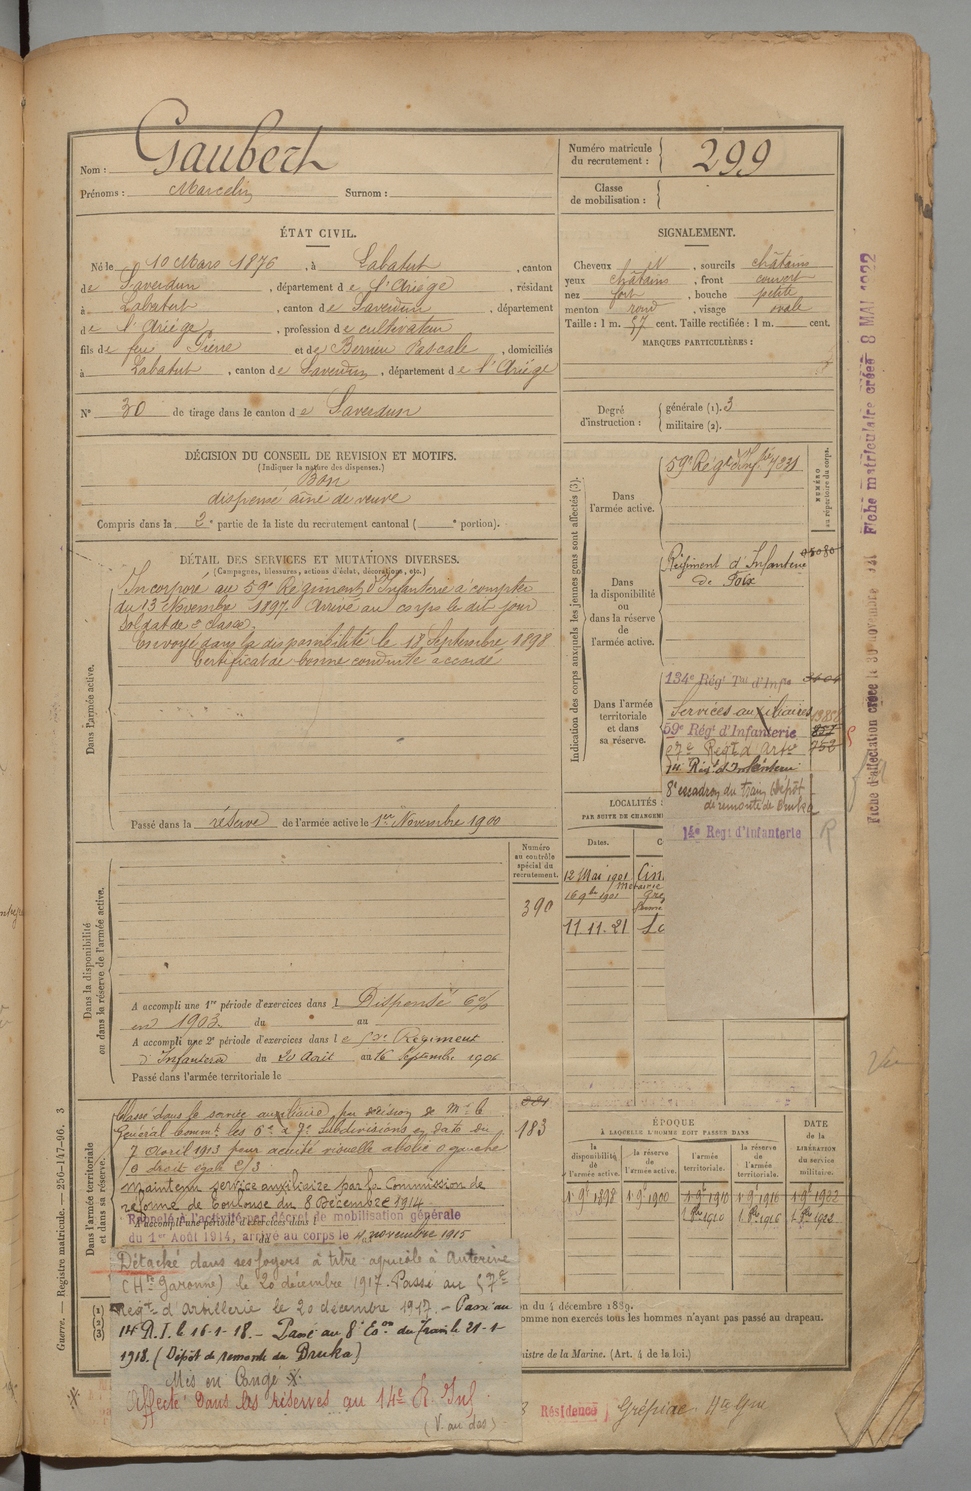 Nom : Gaubert
Prénoms : Marcelin Surnom :
Numéro matricule du recrutement : 299
Classe de mobilisation :
ÉTAT CIVIL.
Né le 10 Mars 1876, à Labatut, canton
de Saverdun, département de l'Ariège, résidant
à Labatut, canton de Saverdun, département
de l'Ariège, profession de cultivateur
fils de feu Pierre et de Pascale, domiciliés
à Labatut, canton de Saverdun, département de l'Ariège
N° 30 de tirage dans le canton de Saverdun
SIGNALEMENT.
Cheveux et, sourcils châtains
yeux châtains, front couvert
nez fort, bouche petite
menton rond, visage ovale
Taille : 1 m. 57 cent. Taille rectifiée : 1 m. cent.
MARQUES PARTICULIÈRES :
Degré d'instruction : générale (1). 3
militaire (2).
DÉCISION DU CONSEIL DE REVISION ET MOTIFS.
(Indiquer la nature des dispenses.)
Bon
dispensé aîné de veuve
Compris dans la 2e partie de la liste du recrutement cantonal ( e portion).
DÉTAIL DES SERVICES ET MUTATIONS DIVERSES.
(Campagnes, blessures, actions d'éclat, décorations, etc.)
Dans l'armée active.
Incorporé au 59e Régiment d'Infanterie à compter
du 13 Novembre 1897. Arrivé au corps le dit jour
soldat de 2e classe.
Envoyé dans la disponibilité le 18 Septembre 1898
Certificat de bonne conduite accordé
Passé dans la réserve de l'armée active le 1er Novembre 1900
Indication des corps auxquels les jeunes gens sont affectés (3).
NUMÉRO au répertoire du corps.
Dans l'armée active.
59e Régt d'Infie
Dans la disponibilité ou dans la réserve de l'armée active.
Régiment d'Infanterie
de Foix
Dans l'armée territoriale et dans sa réserve.
134e Régt Tal d'Infie
Services auxiliaires
59e Régt d'Infanterie
57e Régt d'Artie
14 Régt d'Infanterie
8e escadron du Train (Dépôt
de remonte de Druka
14e Régt d'Infanterie
R
LOCALITÉS :
PAR SUITE DE CHANGEM
Dates.
12 Mai 1901
16 9bre 1901
11 11. 21
Numéro au contrôle spécial du recrutement.
390
Dans la disponibilité ou dans la réserve de l'armée active.
A accompli une 1re période d'exercices dans l Dispensé
en 1903. du au
A accompli une 2e période d'exercices dans le Régiment
d'Infanterie du 20 Août au 16 Septembre 1906
Passé dans l'armée territoriale le
Dans l'armée territoriale et dans sa réserve.
Classé dans le service auxiliaire, par décision de Mr le
Général Commt les 6e & 7e subdivisions en date du
7 Avril 1913 pour acuité visuelle abolie O gauche
O droit égale 2/3.
183
Maintenu service auxiliaire par la Commission de
réforme de Toulouse du 8 Décembre 1914
Rappelé à l'activité par décret de mobilisation générale
du 1er Août 1914, arrivé au corps le novembre 1915
A accompli une période d'exercices dans l
Détaché dans ses foyers à titre agricole à Auterive
(Hte Garonne) le 20 décembre 1917. Passé au 57e
Régt d'Artillerie le 20 décembre 1917. - Passé au
14 R.I. le 16-1-18. - Passé au 8e Eon du Train le 21-1-
1918. (Dépôt de remonte de Druka)
Mis en Congé
Affecté dans les réserves au 14e R. Inf.
(V. au dos)
ÉPOQUE
À LAQUELLE L'HOMME DOIT PASSER DANS
la disponibilité de l'armée active.
la réserve de l'armée active.
l'armée territoriale.
la réserve de l'armée territoriale.
DATE de la LIBÉRATION du service militaire.
1 9bre 1898 1 9bre 1900 1 9bre 1910 1 9bre 1916 1 9bre 1922
on du 4 décembre 1889.
omme non exercés tous les hommes n'ayant pas passé au drapeau.
nistre de la Marine. (Art. 4 de la loi.)
Résidence Grépiac Hte Gne
Guerre. — Registre matricule. — 256-147-96. 3
Fiche d'affectation créée le 30 novembre 1921 Fiche matriculaire créée 8 MAI 1922